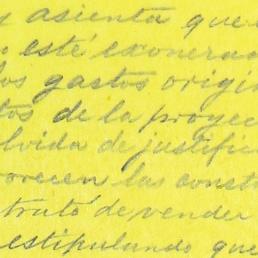 y asienta que
o esté exonerac
los gastos origin
tos de la proyec
lvida de justific
orecen las constr
trató de vender
estipulando que